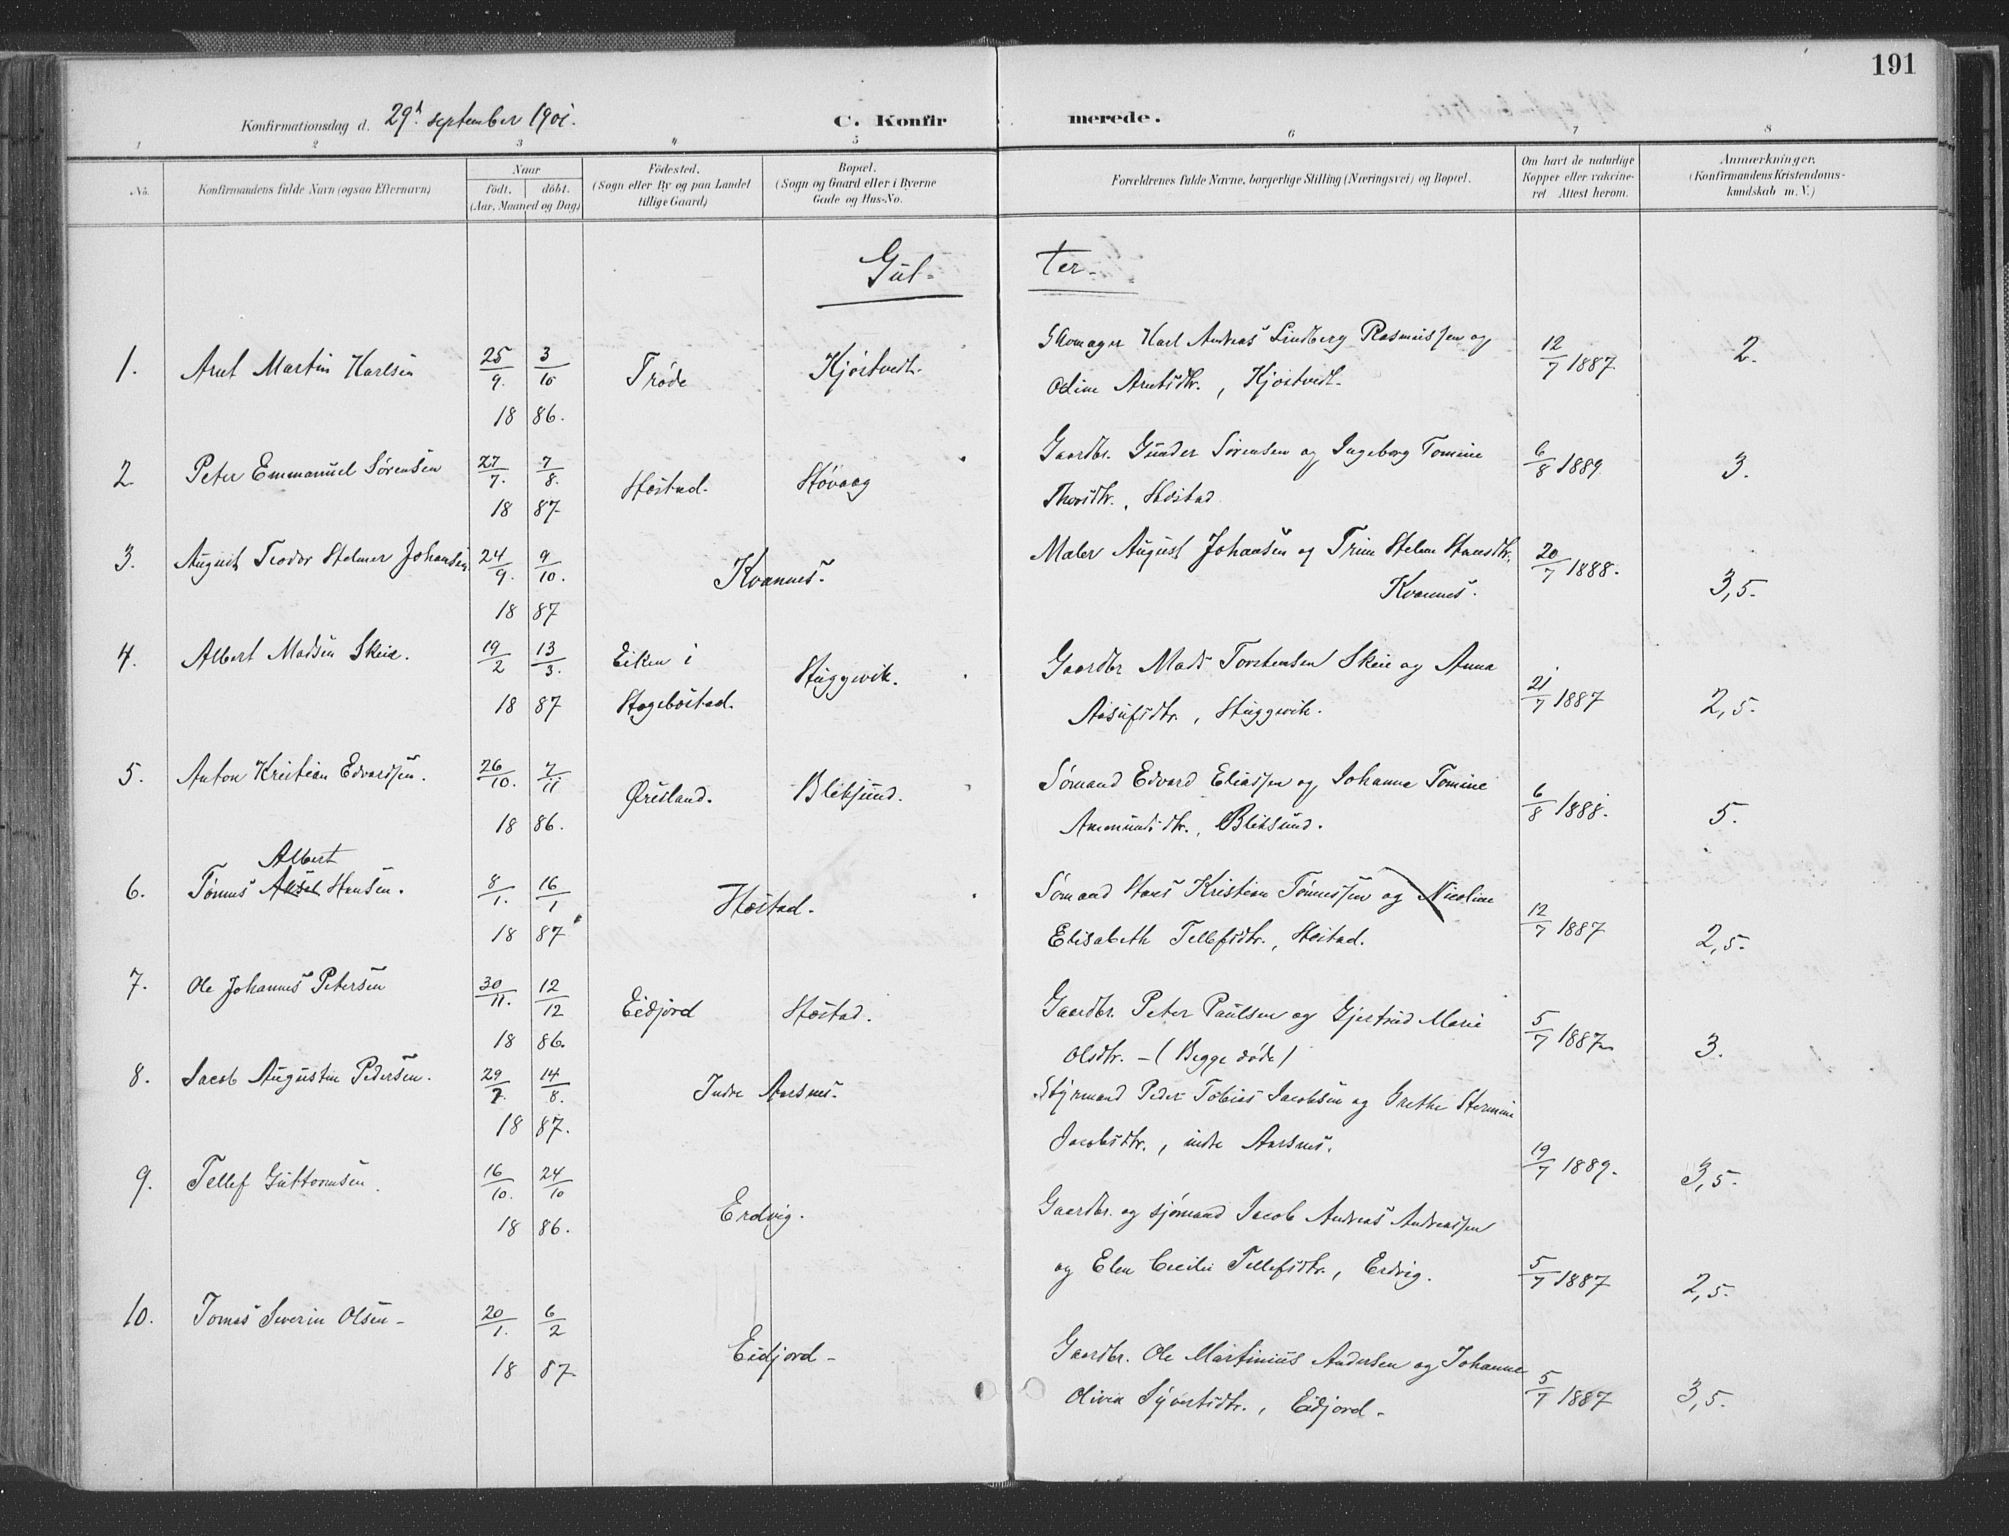 191
Konfirmationsdag d. 29de september 1901.
C. Konfirmerede.
1 2 3 4 5 6 7 8
No. Konfirmandens fulde Navn (ogsaa Efternavn) Naar født. døbt. (Aar, Maaned og Dag) Födested. (Sogn eller By og paa Landet tillige Gaard) Bopæl. (Sogn og Gaard eller i Byerne Gade og Hus-No. Forældrenes fulde Navne, borgerlige Stilling (Næringsvei) og Bopæl. Om havt de naturlige Kopper eller vakcineret Attest herom. Anmærkninger. (Konfirmandens Kristendomskundskab m. V.)
Gut- ter-
1. Arnt Martin Karlsen 25/9. 3/10 Trøde Kjøstvedt. Skomager Karl Andreas Lindberg Rasmussen og 12/7 1887 2.
18 86. Oline Arntsdtr., Kjøstvedt.
2 Peter Emmanuel Sørensen 27/7. 7/8. Høstad. Høvaag Gaardbr. Gunder Sørensen og Ingeborg Tomine 6/8 1889 3.
18 87. Thorsdtr., Høstad
3. August Teodor Helmer Johansen 24/9. 9/10. Kvannes. Maler August Johansen og Trine Helene Hansdtr. 20/7 1888. 3,5.
18 87 Kvannes.
4. Albert Madsen Skeie. 19/2 13/3. Eiken i Hægebostad. Huggevik. Gaardbr Mads Torstensen Skeie og Anna 21/7 1887 2,5.
18 87 Aasufsdtr., Huggevik.
5. Anton Kristian Edvardsen. 26/10. 7/11 Øresland. Bleksund. Sømand Edvard Eliassen og Johanne Tomine 6/8 1888. 5.
18 86. Ammundsdtr., Bleksund.
Albert
6. Tønnes Aksel Hansen. 8/1. 16/1 Høstad. Sømand Hans Kristian Tønnessen og Nicoline 12/7 1887 2,5.
18 87 Elisabeth Tellefsdtr., Høstad.
7. Ole Johannes Petersen 30/11. 12/12 Eidjord Høstad. Gaardbr. Peter Paulsen og Gjertrud Marie 5/7 1887 3.
18 86. Olsdtr. - (Begge døde)
8. Jacob Augustin Pedersen. 29/7. 14/8. Indre Aarsnes. Styrmand Peder Tobias Jacobsen og Grethe Hermine 19/7 1889. 3,5.
18 87. Jacobsdtr., indre Aarsnes.
9. Tellef Guttormsen. 16/10. 24/10 Erdvig. Gaardbr. og sjømand Jacob Andreas Andreassen 5/7 1887 2,5.
18 86. og Elen Cecilie Tellefsdtr., Erdvig.
10. Tomas Severin Olsen- 20/1. 6/2 Eidjord- Gaardbr. Ole Martinius Andersen og Johanne 5/7 1887 3,5.
18 87. Olivia Syvertsdtr., Eidjord-